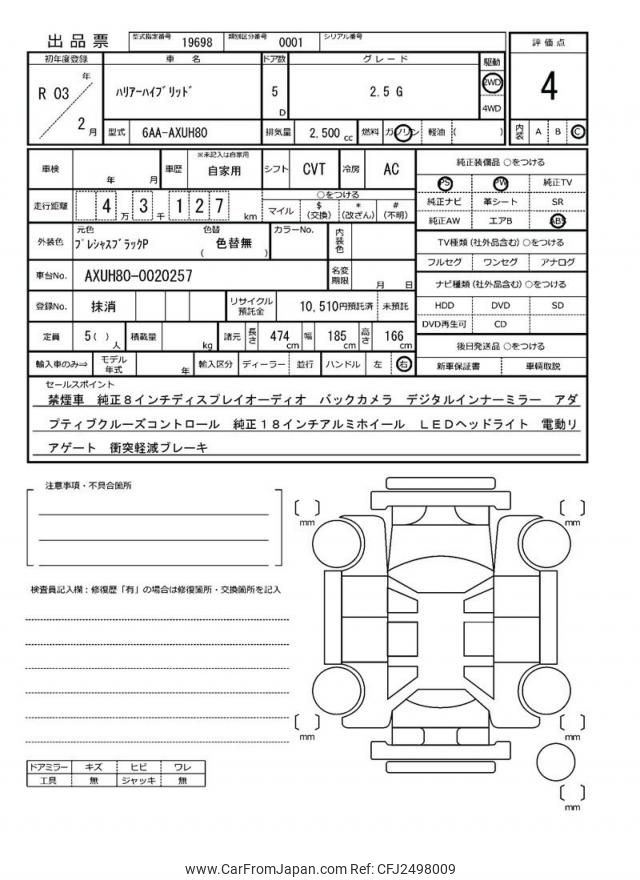 出品票 型式指定番号 19698 類別区分番号 0001 シリアル番号
評価点
4
内装 A B C
初年度登録 車名 ドア数 グレード 駆動
R 03 年 2 月 ﾊﾘｱｰﾊｲﾌﾞﾘｯﾄﾞ 5 D 2.5 G 2WD 4WD
型式 6AA-AXUH80 排気量 2,500 cc 燃料 ガソリン 軽油 ( )
車検 年 月 車歴 ※未記入は自家用 自家用 シフト CVT 冷房 AC
走行距離 4 万 3 千 1 2 7 km ○をつける
マイル $ (交換) * (改ざん) # (不明)
外装色 元色 ﾌﾟﾚｼｬｽﾌﾞﾗｯｸP 色替 ( 色替無 ) カラーNo. 内装色
車台No. AXUH80-0020257 名変期限 月 日
登録No. 抹消 リサイクル預託金 10,510円預託済 未預託
定員 5 ( ) 人 積載量 kg 諸元 長さ 474 cm 幅 185 cm 高さ 166 cm
輸入車のみ⇒ モデル年式 年 輸入区分 ディーラー 並行 ハンドル 左 右
純正装備品 ○をつける
PS PW 純正TV
純正ナビ 革シート SR
純正AW エアB ABS
TV種類 (社外品含む) ○をつける
フルセグ ワンセグ アナログ
ナビ種類 (社外品含む) ○をつける
HDD DVD SD
DVD再生可 CD
後日発送品 ○をつける
新車保証書 車輌取説
セールスポイント
禁煙車 純正8インチディスプレイオーディオ バックカメラ デジタルインナーミラー アダ
プティブクルーズコントロール 純正18インチアルミホイール LEDヘッドライト 電動リ
アゲート 衝突軽減ブレーキ
注意事項・不具合箇所
検査員記入欄：修復歴「有」の場合は修復箇所・交換箇所を記入
ドアミラー キズ ヒビ ワレ
工具 無 ジャッキ 無
[ ] mm
[ ] mm
[ ] mm
[ ] mm
[ ] mm
www.CarFromJapan.com Ref: CFJ2498009